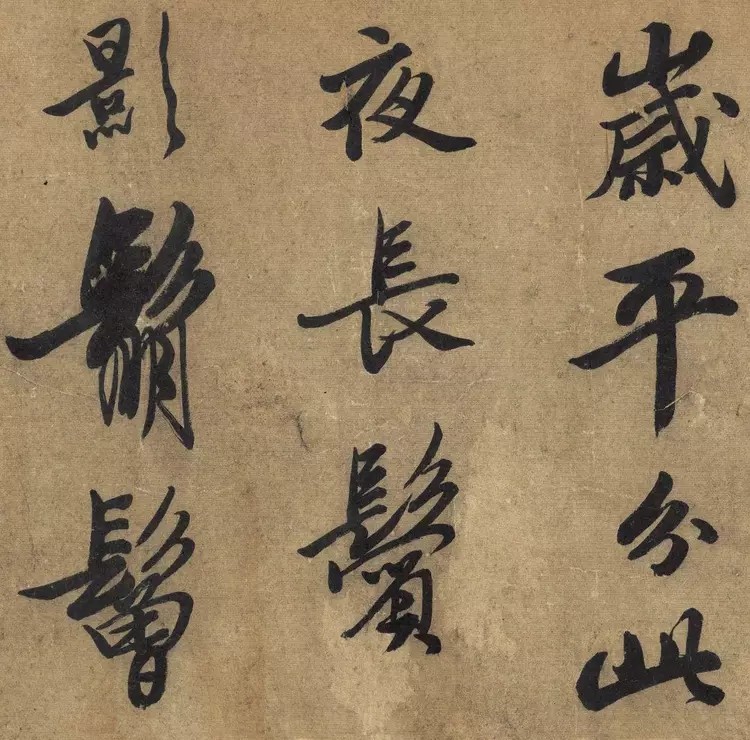 歲平分此
夜長鬢
影鬅鬙